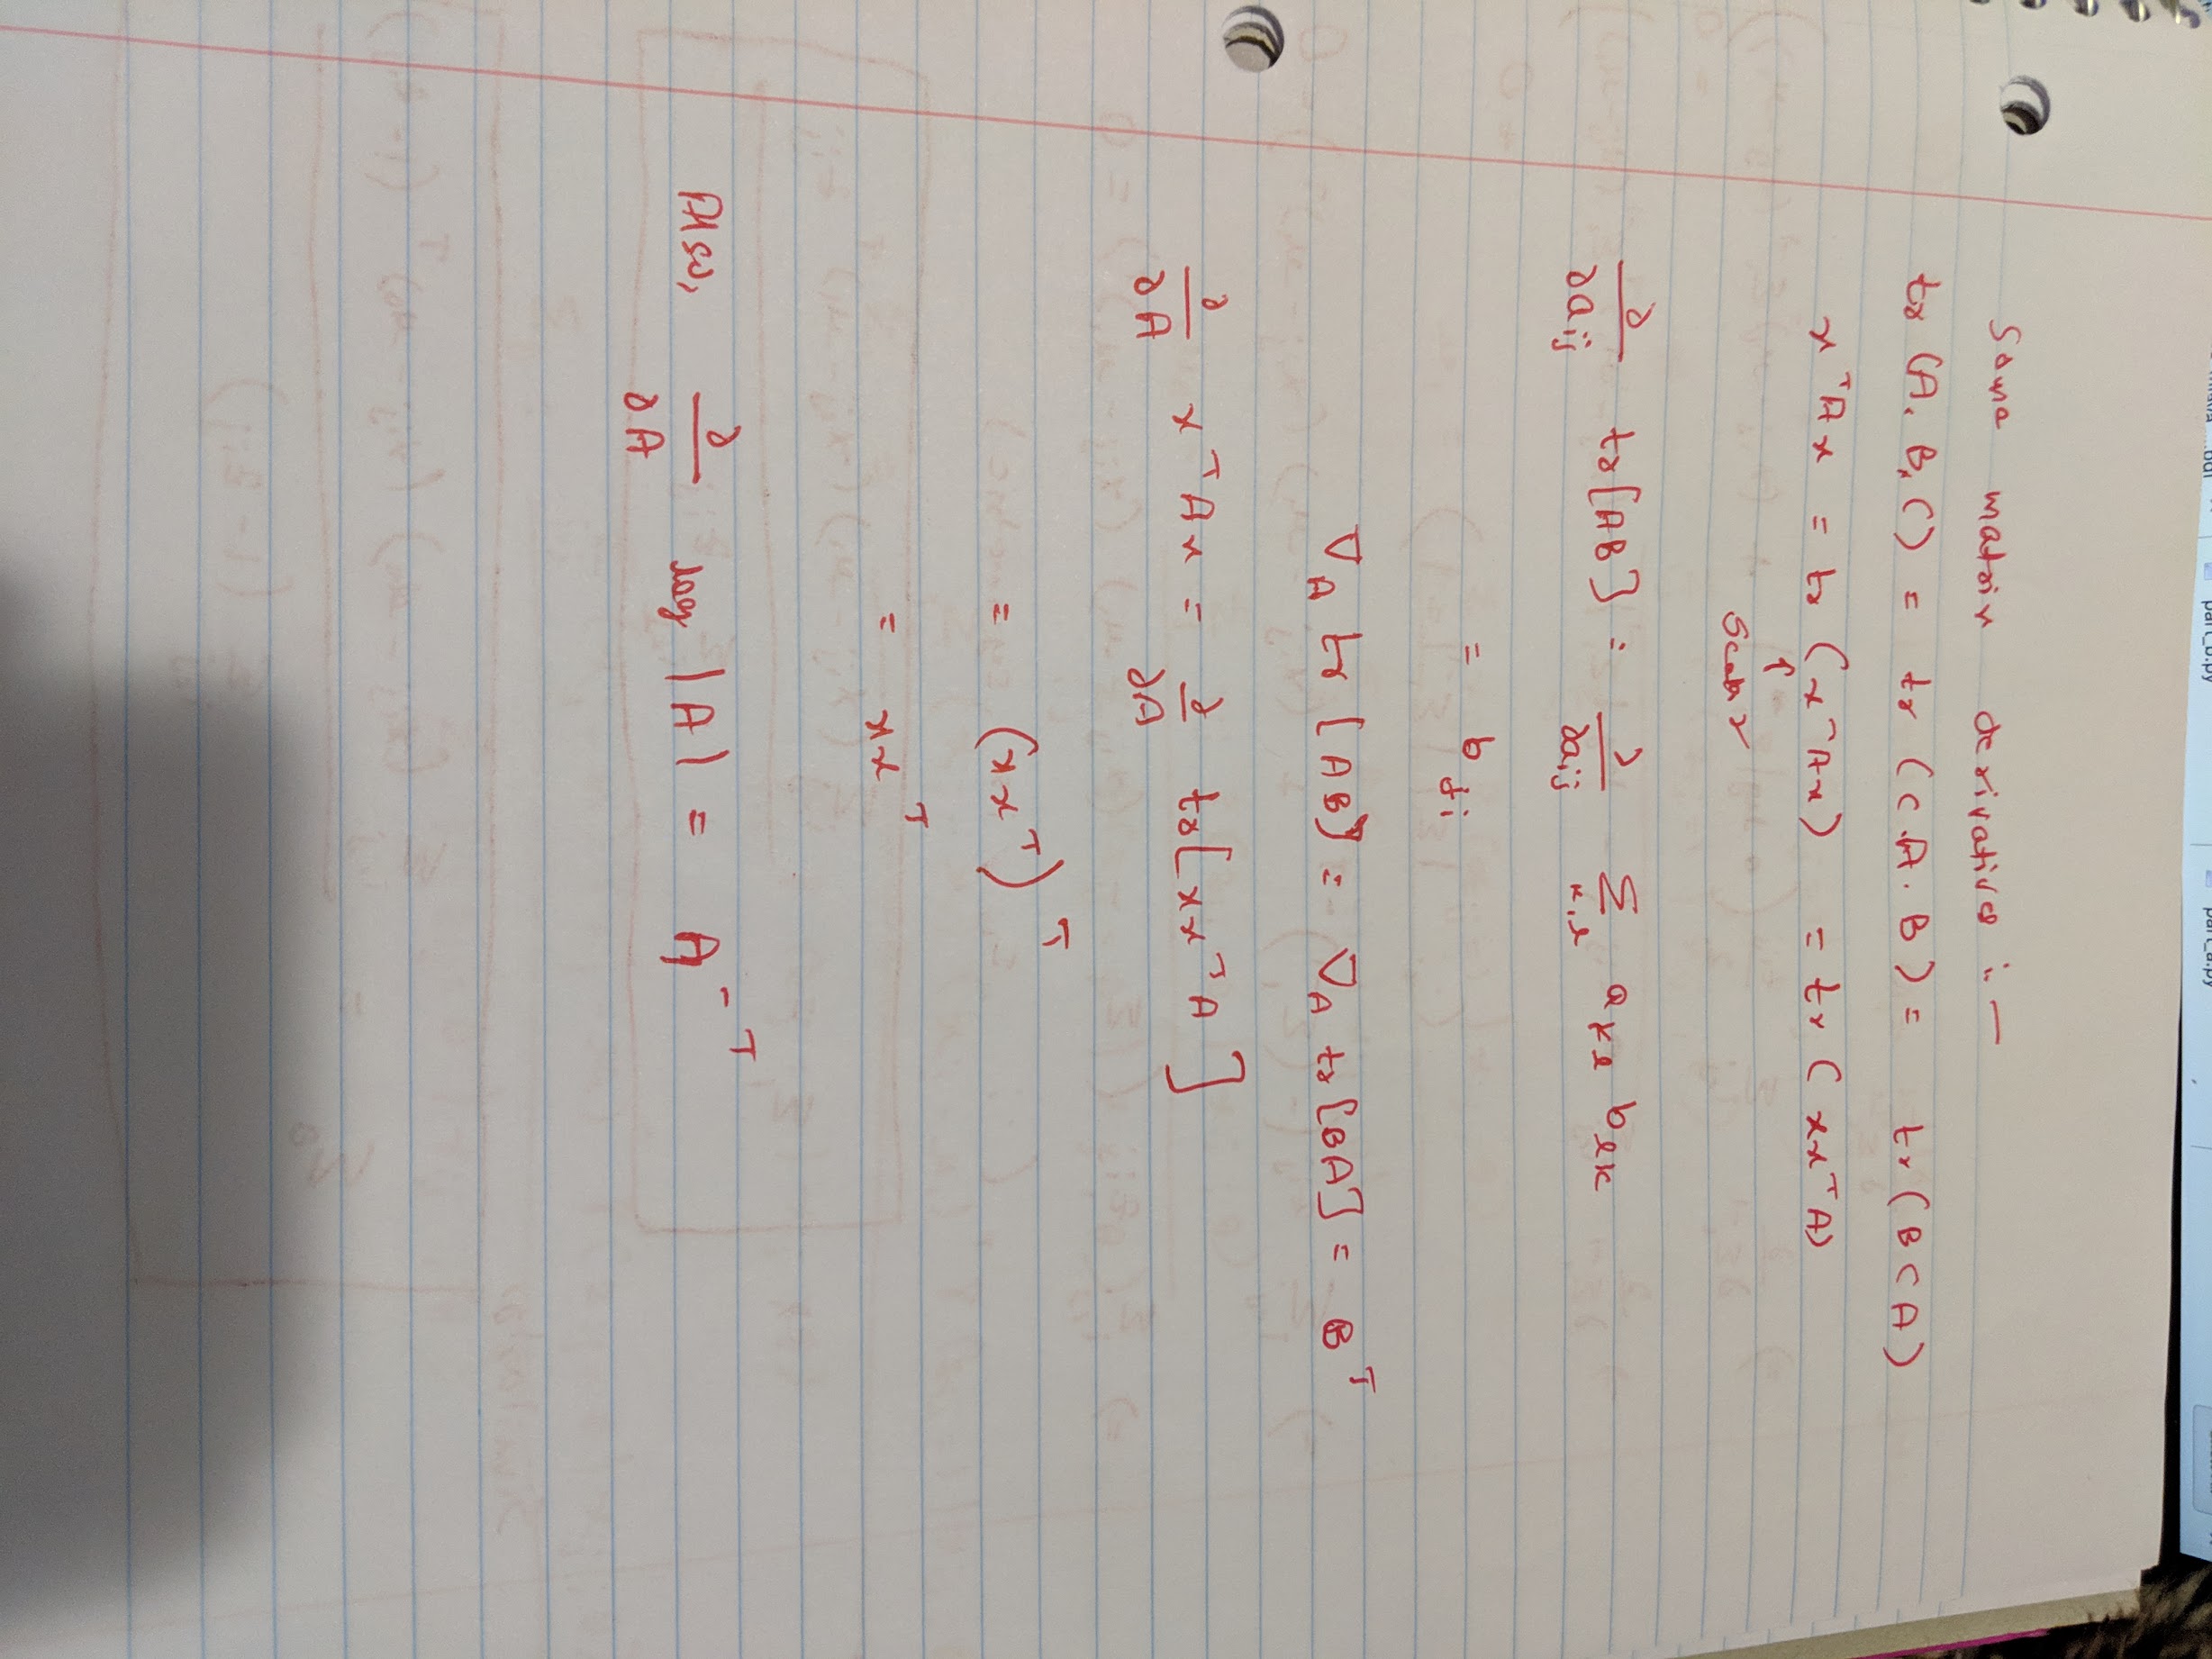 Some matrix derivatives :-
tr (A. B. C) = tr (C A. B) = tr (B C A)
x^T A x = tr (x^T A x) = tr (x x^T A)
↑
Scalar
∂/∂a_ij tr[AB] = ∂/∂a_ij Σ_{k,l} a_kl b_lk
= b_ji
∇_A tr [AB] = ∇_A tr [BA] = B^T
∂/∂A x^T A x = ∂/∂A tr[x x^T A]
= (x x^T)^T
= x x^T
Also, ∂/∂A log |A| = A^-T
part_b.py
part_a.py